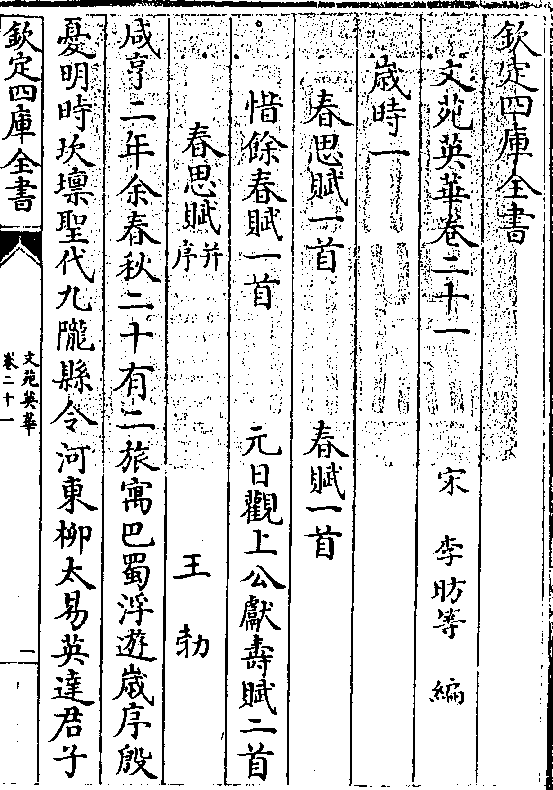 欽定四庫全書
文苑英華卷二十一 宋 李昉等 編
歳時一
春思賦一首 春賦一首
惜餘春賦一首 元日觀上公獻壽賦二首
春思賦并序 王勃
咸亨二年余春秋二十有二旅寓巴蜀浮遊歳序殷
憂明時坎壈聖代九隴縣令河東柳太易英達君子
欽定四庫全書
文苑英華
卷二十一
一